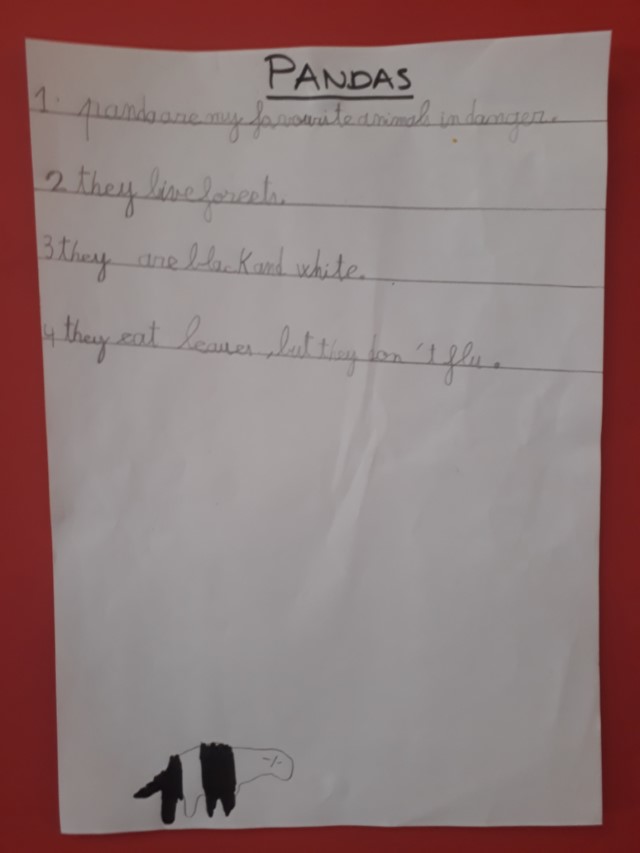 PANDAS
1. panda are my favourite animals in danger.
2 they live forects.
3 they are black and white.
4 they eat leaves, but they don't flu.